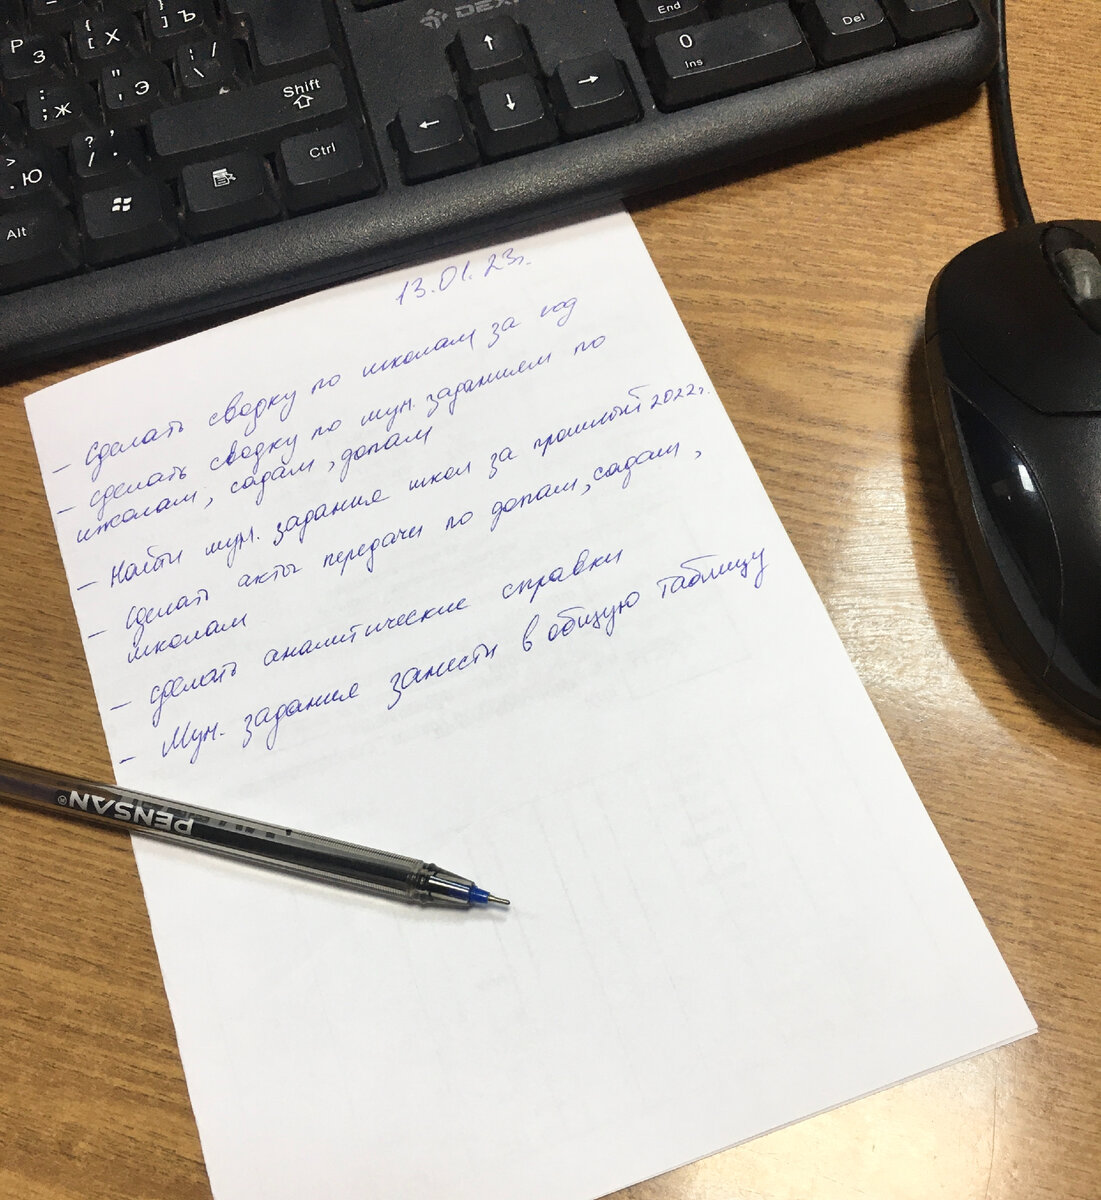 P З
{ [ Х
} ] Ъ
: ; Ж
" ' Э
: / \
Shift
> . Ю
? / . ,
Ctrl
Alt
DEX
End
0
Ins
Del
13.01.23г.
- Сделать сводку по школам за год
- сделать сводку по мун. заданием по
школам, садам, допам
- Найти мун. задание школ за прошлый 2022г.
- Сделать акты передачи по допам, садам,
школам
- сделать аналитические справки
- Мун. задание занести в общую таблицу
PENSAN®